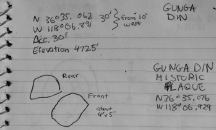 GUNGA
DIN
N 36°35.062 30' } from 10'
W 118°06.921 } WEST
Acc. 30'
Elevation 4725'
Rear
Front
about
4'x5'
GUNGA DIN
HISTORIC
PLAQUE
N36°35.076
W118°06.929